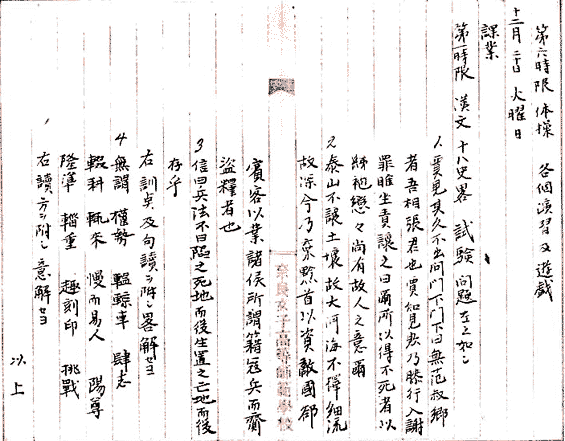 第六時限 体操 各個演習及遊戯
十二月二十日 火曜日
課業
第一時限 漢文 十八史畧 試験 問題左之如シ
1. 賈見其久不出問門下門下曰無范叔郷
者吾相張君也賈知見欺乃膝行入謝
罪睢坐責讓之曰爾所以得不死者以
綈袍戀々尚有故人之意爾
2. 泰山不讓土壤故大河海不擇細流
故深今乃棄黔首以資敵國郤
賓客以業諸侯所謂籍寇兵而齎
盗糧者也
3. 信曰兵法不曰陷之死地而後生置之亡地而後
存乎
右訓点及句讀ヲ附シ畧解セヨ
4. 無謂 權勢 轀輬車 肆志
輟耕 耒 慢而易人 陽尊
隆準 輜重 趣刻印 挑戰
右讀方ヲ附シ意解セヨ
以上
奈良女子高等師範學校